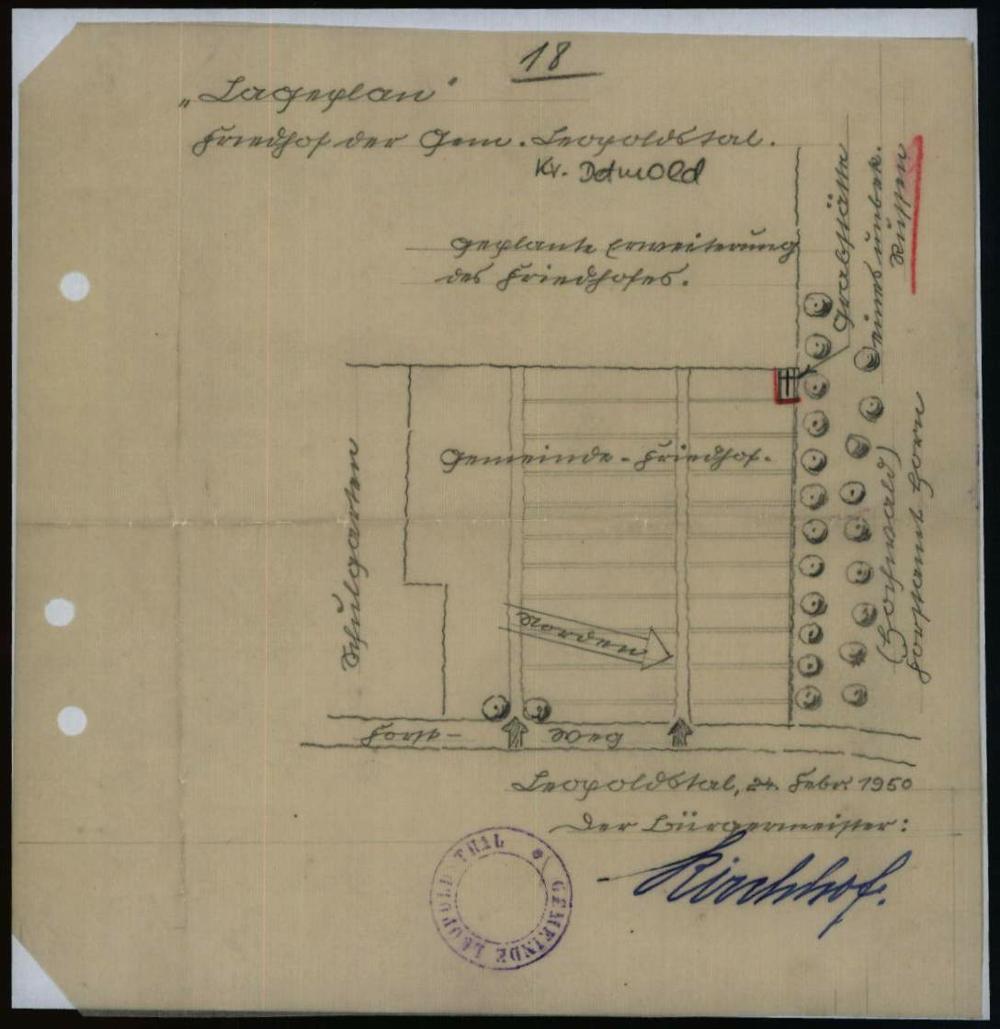 18
„Lageplan"
Friedhof der Gem. Leopoldstal.
Kr. Detmold
geplante Erweiterung
des Friedhofes.
Grabstätte
eines unbek.
Russen
Gemeinde-Friedhof.
Schulgarten
(Hochwald)
Forstamt Horn
Norden
Forst-Weg
Leopoldstal, 24. Febr. 1950
Der Bürgermeister:
Kirchhof.
GEMEINDE LEOPOLDTHAL